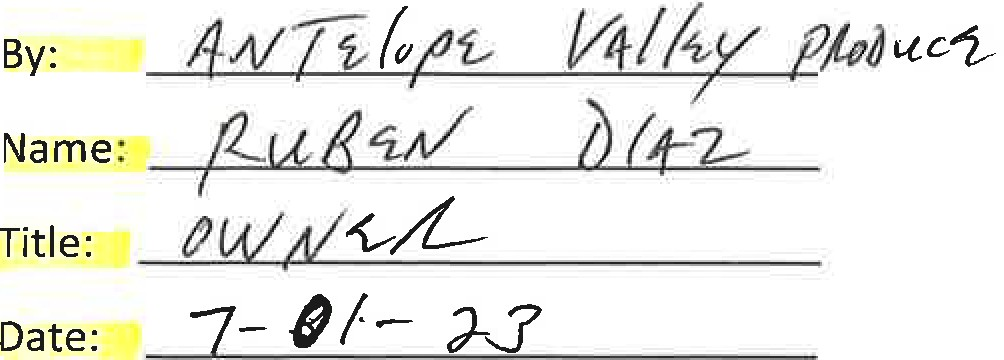 By: ANTElopE VAllEy PRODUCE
Name: RUBEN DIAZ
Title: OWNER
Date: 7-01-23